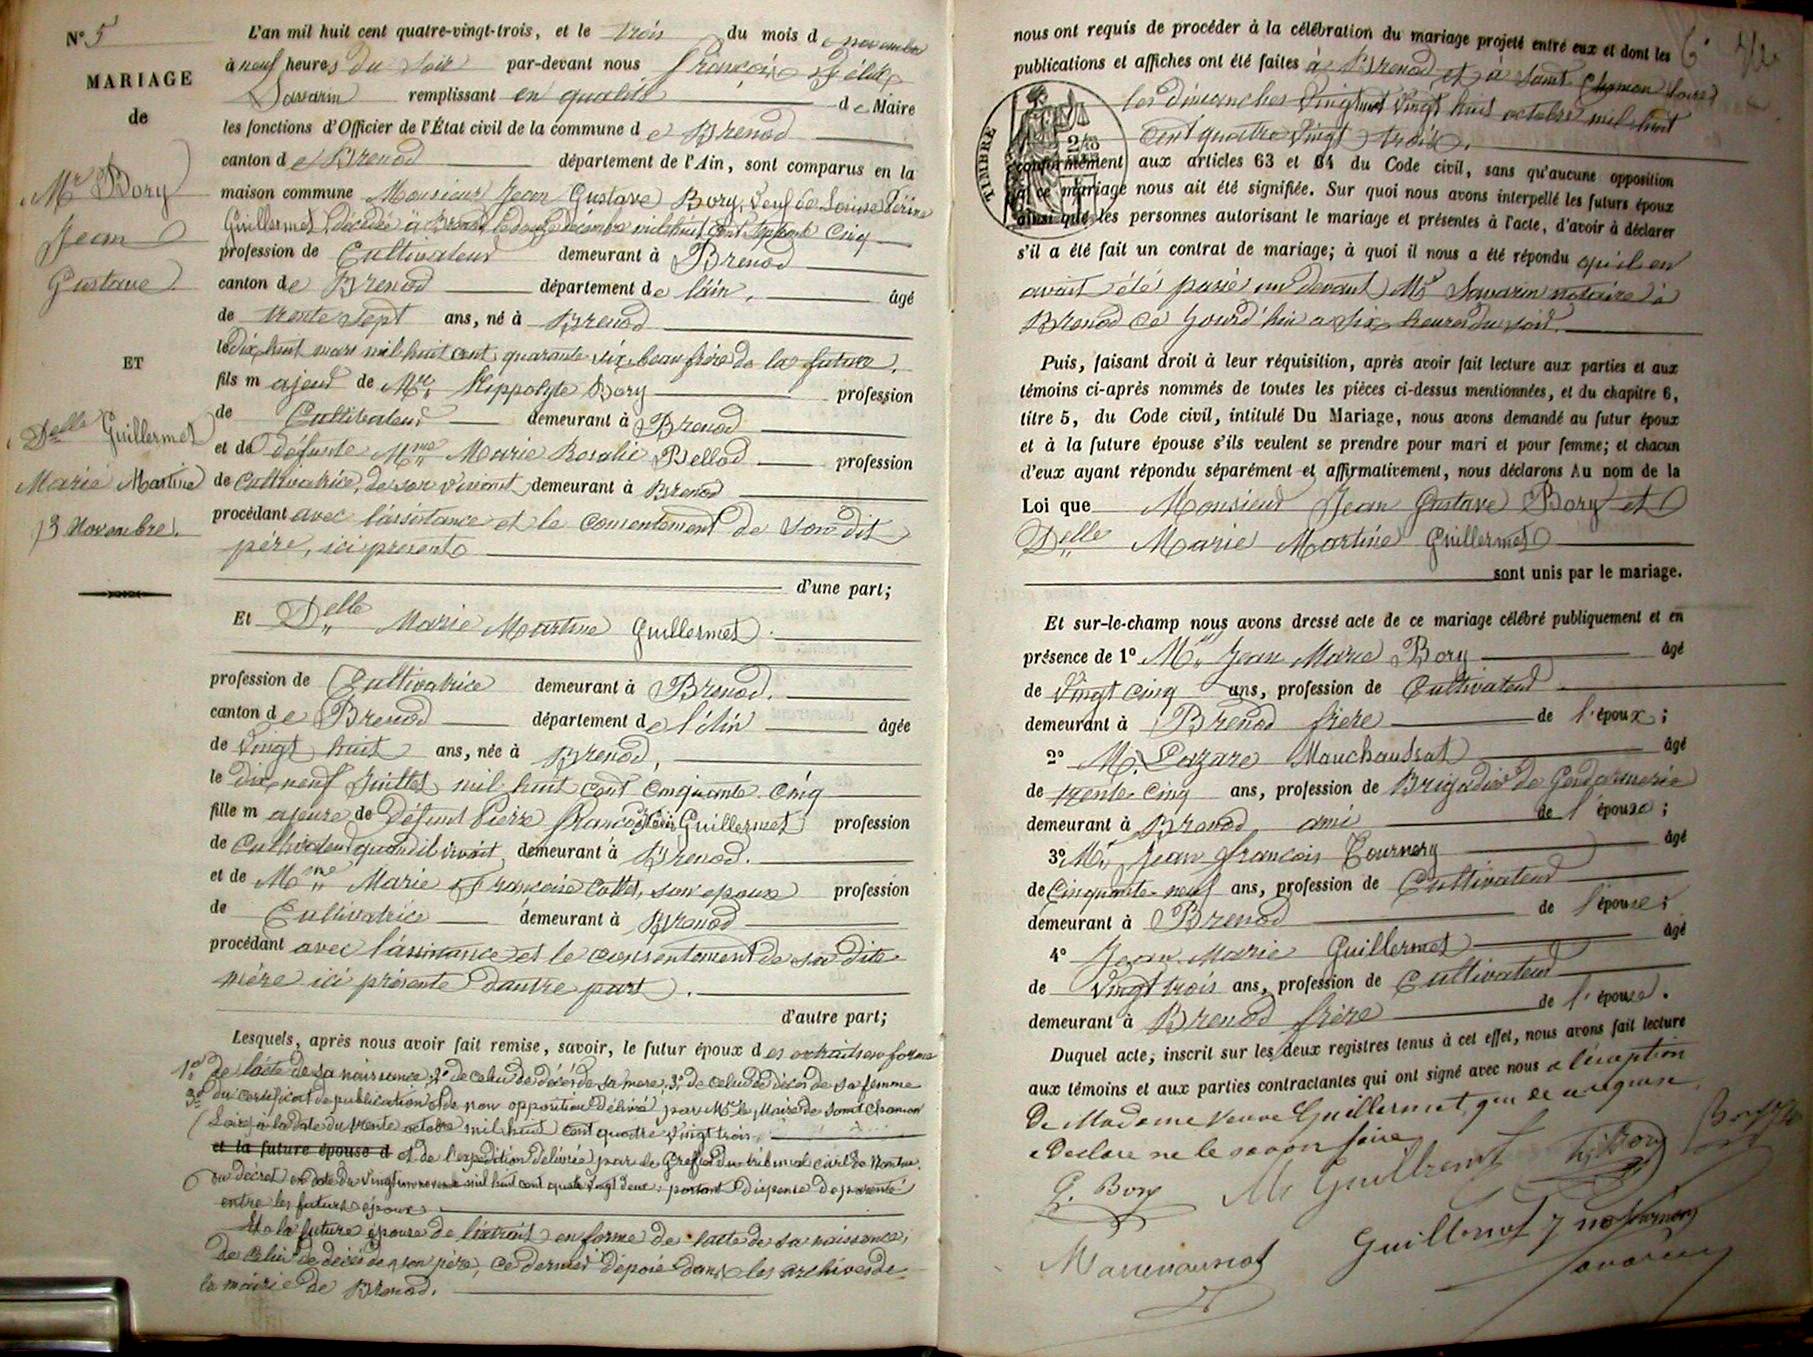 N° 5
MARIAGE
de
Mr Bory
Jean
Gustave
ET
Delle Guillermet
Marie Martine
3 Novembre.
L'an mil huit cent quatre-vingt-trois, et le trois du mois de novembre
à neuf heures du soir par-devant nous François Félix
Savarin remplissant en qualité de Maire
les fonctions d'Officier de l'État civil de la commune de Brenod
canton de Brenod département de l'Ain, sont comparus en la
maison commune Monsieur Jean Gustave Bory, veuf de Louise
Guillermet décédée à Brenod le douze décembre mil huit cent septante cinq
profession de Cultivateur demeurant à Brenod
canton de Brenod département de l'ain, âgé
de trente sept ans, né à Brenod
le dix huit mars mil huit cent quarante six beau frère de la future,
fils majeur de Mr Hippolyte Bory profession
de Cultivateur demeurant à Brenod
et de défunte Mme Marie Rosalie Bellod profession
de Cultivatrice, de son vivant demeurant à Brenod
procédant avec l'assistance et le consentement de son dit
père, ici présent
d'une part;
Et Delle Marie Martine Guillermet.
profession de Cultivatrice demeurant à Brenod.
canton de Brenod département de l'Ain âgée
de vingt huit ans, née à Brenod,
le dix neuf Juillet mil huit cent cinquante cinq
fille majeure de défunt Pierre François Guillermet profession
de Cultivateur quand il vivait, demeurant à Brenod.
et de Mme Marie Françoise Collet, son epoux profession
de Cultivatrice demeurant à Brenod
procédant avec l'assistance et le consentement de sa dite
mère ici présente d'autre part.
d'autre part;
Lesquels, après nous avoir fait remise, savoir, le futur époux des extraits en forme
1° de l'acte de sa naissance, 2° de celui de décès de sa mère, 3° de celui de décès de sa femme
du certificat de publication et de non opposition délivré par Mr le Maire de Saint Chamon
(Loire) à la date du trente octobre mil huit cent quatre vingt trois
et la future épouse d et de l'expédition délivrée par le Greffe du tribunal civil de Nantua.
du décret en date du vingt un mil huit cent quatre vingt deux portant dispense de parenté
entre les futurs époux
Et la future épouse de l'extrait en forme de l'acte de sa naissance,
de celui de décès de son père, ce dernier déposé dans les archives de
la mairie de Brenod.
nous ont requis de procéder à la célébration du mariage projeté entre eux et dont les
publications et affiches ont été faites à Brenod et à Saint Chamon Loire
les dimanches vingt et vingt huit octobre mil huit
cent quatre vingt trois.
TIMBRE
conformément aux articles 63 et 64 du Code civil, sans qu'aucune opposition
à ce mariage nous ait été signifiée. Sur quoi nous avons interpellé les futurs époux
ainsi que les personnes autorisant le mariage et présentes à l'acte, d'avoir à déclarer
s'il a été fait un contrat de mariage; à quoi il nous a été répondu qu'il en
avait été passé un devant Me Savarin notaire à
Brenod ce jourd'hui a six heures du soir.
Puis, faisant droit à leur réquisition, après avoir fait lecture aux parties et aux
témoins ci-après nommés de toutes les pièces ci-dessus mentionnées, et du chapitre 6,
titre 5, du Code civil, intitulé Du Mariage, nous avons demandé au futur époux
et à la future épouse s'ils veulent se prendre pour mari et pour femme; et chacun
d'eux ayant répondu séparément et affirmativement, nous déclarons Au nom de la
Loi que Monsieur Jean Gustave Bory et
Delle Marie Martine Guillermet
sont unis par le mariage.
Et sur-le-champ nous avons dressé acte de ce mariage célébré publiquement et en
présence de 1° Mr Jean Marie Bory âgé
de vingt cinq ans, profession de Cultivateur
demeurant à Brenod frère de l'époux;
2° M. Lazare Mauchaussat âgé
de trente cinq ans, profession de Brigadier de Gendarmerie
demeurant à Brenod ami de l'épouse;
3° Mr Jean François Tournery âgé
de cinquante neuf ans, profession de Cultivateur
demeurant à Brenod de l'épouse;
4° Jean Marie Guillermet âgé
de vingt trois ans, profession de Cultivateur
demeurant à Brenod frère de l'épouse.
Duquel acte, inscrit sur les deux registres tenus à cet effet, nous avons fait lecture
aux témoins et aux parties contractantes qui ont signé avec nous a l'éxception
de Madame veuve Guillermet qui de ce requise
a Déclaré ne le savoir faire
G. Bory M Guillermet Hi Bory Bory
Guillermet J
Savarin